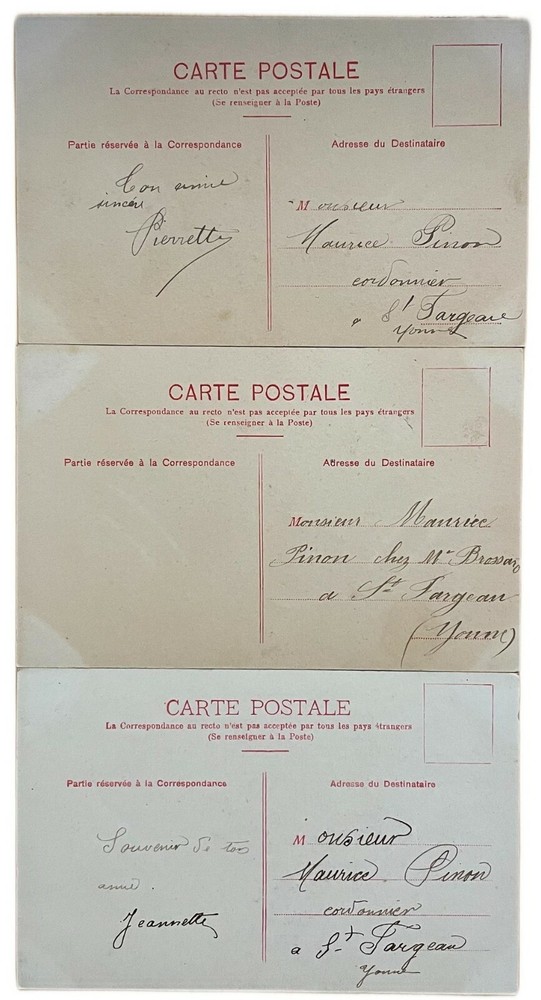 CARTE POSTALE
La Correspondance au recto n'est pas acceptée par tous les pays étrangers
(Se renseigner à la Poste)
Partie réservée à la Correspondance
Ton amie
sincère
Pierrette
Adresse du Destinataire
Monsieur
Maurice Pinon
cordonnier
a St Fargeau
Yonne
CARTE POSTALE
La Correspondance au recto n'est pas acceptée par tous les pays étrangers
(Se renseigner à la Poste)
Partie réservée à la Correspondance
Adresse du Destinataire
Monsieur Maurice
Pinon chez Mr Brossard
a St Fargeau
(Yonne)
CARTE POSTALE
La Correspondance au recto n'est pas acceptée par tous les pays étrangers
(Se renseigner à la Poste)
Partie réservée à la Correspondance
Souvenir de ton
amie.
Jeannette
Adresse du Destinataire
Monsieur
Maurice Pinon
cordonnier
a St Fargeau
Yonne